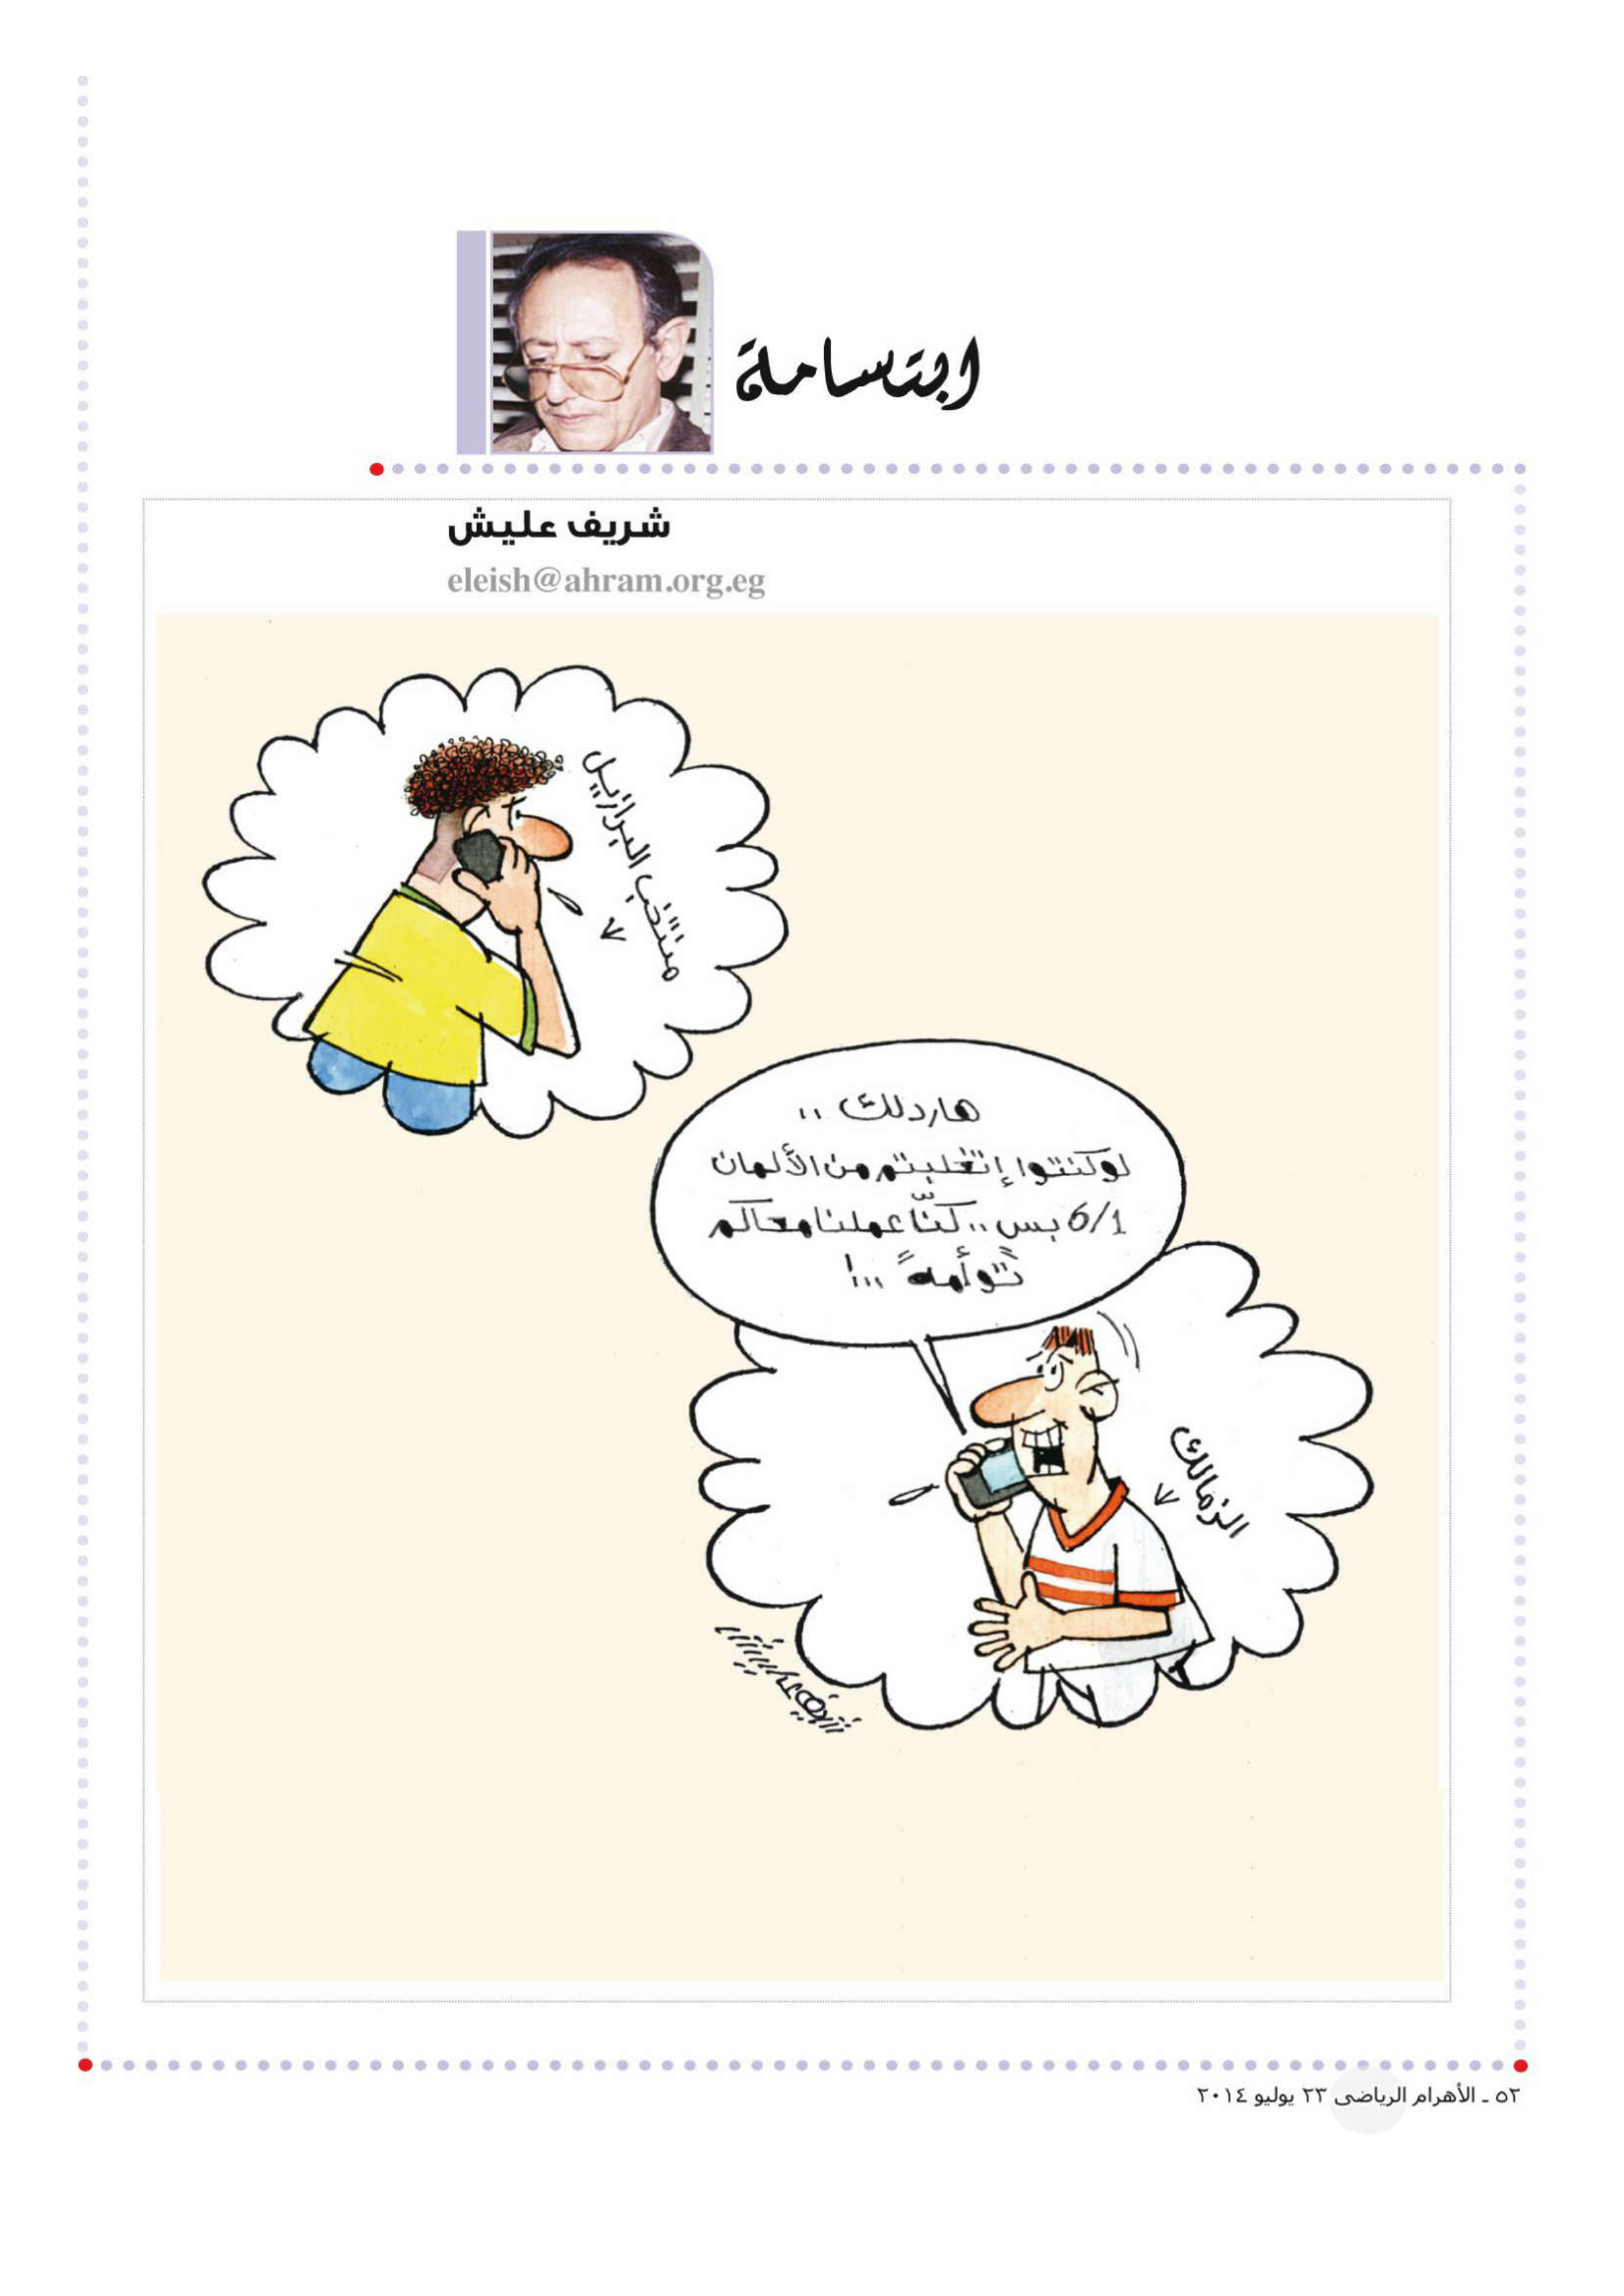 ابتسامة
شريف عليش
eleish@ahram.org.eg
منتخب البرازيل
هاردلك ..
لوكنتوا إتغلبتم من الألمان
6/1 بس .. كنّا عملنا معاكم
توأمة ...!
الزمالك
شريف عليش
٥٢ ـ الأهرام الرياضى ٢٣ يوليو ٢٠١٤